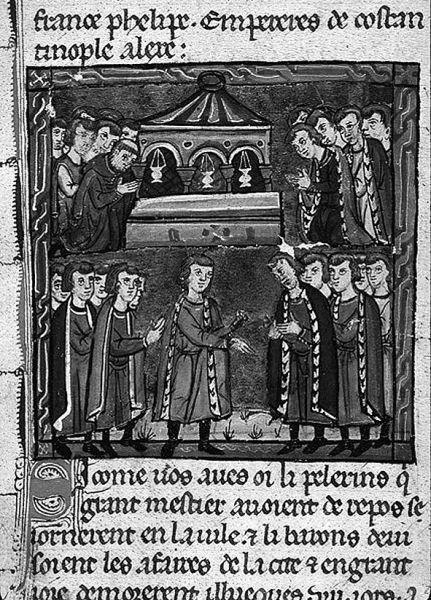 france phelipe. Empereres de costan
tinople alexe:
Si come vos aves oi li pelerins q̃
grant mestier avoient de repos se
iornerent en la vile ⁊ li barons devi
soient les afaires de la cite ⁊ en grant
ioie demorerent illueques .viii. iors.